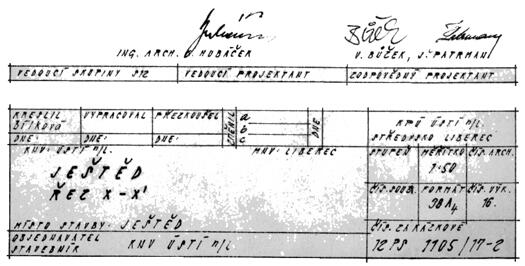 ING. ARCH. K. HUBÁČEK V. BŮČEK, J. PATRMAN
VEDOUCÍ SKUPINY S12 VEDOUCÍ PROJEKTANT ZODPOVĚDNÝ PROJEKTANT
KRESLIL VYPRACOVAL PŘEZKOUŠEL a KPÚ ÚSTÍ n/L
ZÍKOVÁ b STŘEDISKO LIBEREC
DNE: DNE: DNE: c DNE
KNV: ÚSTÍ n/L. MNV: LIBEREC STUPEŇ MĚŘÍTKO ČÍS. ARCH.
JEŠTĚD 1:50
ŘEZ X-X' ČÍS. SOUB. FORMÁT ČÍS. VÝK.
38A4 16.
MÍSTO STAVBY: JEŠTĚD ČÍS. ZAKÁZKOVÉ
OBJEDNAVATEL
STAVEBNÍK KNV ÚSTÍ n/L 12 PS 1105/17-2